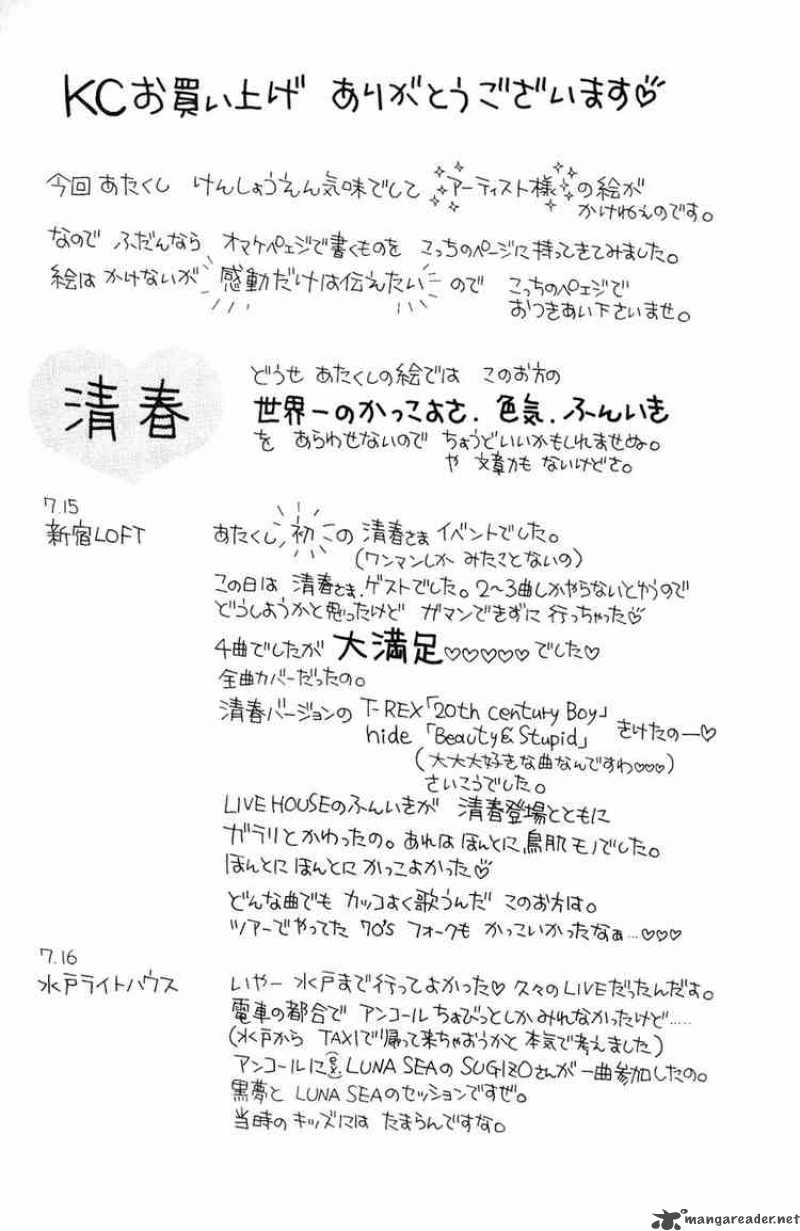 KCお買い上げ ありがとうございます♡
今回 あたくし けんしょうえん気味でして アーティスト様 の絵が
かけねえのです。
なので ふだんなら オマケペェジで書くものを こっちのページに持ってきてみました。
絵は かけないが 感動だけは伝えたい ので こっちのペェジで
おつきあい下さいませ。
清春
どうせ あたくしの絵では このお方の
世界一のかっこよさ、色気、ふんいき
を あらわせないので ちょうどいいかもしれませぬ。
や 文章力も ないけどさ。
7.15
新宿LOFT
あたくし 初 の 清春さま イベントでした。
(ワンマンしか みたことないの)
この日は 清春さま、ゲストでした。2〜3曲しかやらないとゆうので
どうしようかと思ったけど ガマンできずに 行っちゃった♡
4曲でしたが 大満足♡♡♡♡♡でした♡
全曲カバーだったの。
清春バージョンの T-REX「20th century Boy」
hide 「Beauty&Stupid」 きけたのー♡
(大大大好きな曲なんですわ♡♡♡)
さいこうでした。
LIVE HOUSEのふんいきが 清春登場とともに
ガラリとかわったの。あれは ほんとに鳥肌モノでした。
ほんとに ほんとに かっこよかった♡
どんな曲でも カッコよく歌うんだ このお方は。
ツアーでやってた 70's フォークも かっこいかったなぁ…♡♡♡
7.16
水戸ライトハウス
いやー 水戸まで行ってよかった♡ 久々のLIVEだったんだよ。
電車の都合で アンコール ちょびっとしかみれなかったけど……
(水戸から TAXIで帰って来ちゃおうかと 本気で考えました)
アンコールに LUNA SEAの SUGIZOさんが 一曲参加したの。
黒夢と LUNA SEAのセッションですぜ。
当時の キッズには たまらんですな。
mangareader.net